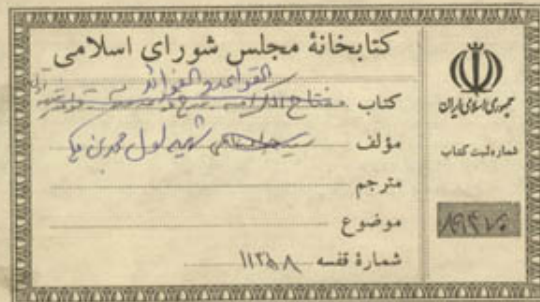 کتابخانهٔ مجلس شورای اسلامی
القواعد و الفوائد
کتاب مفتاح الکرامه
مؤلف شهید اول محمد بن مکی
مترجم
موضوع
شمارهٔ قفسه ۱۱۲۵۸
جمهوری اسلامی ایران
شماره ثبت کتاب